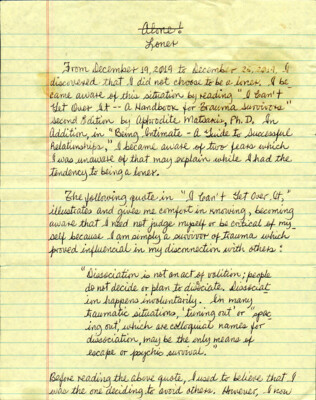 Alone!
Loner
From December 19, 2019 to December 26, 2019, I
discovered that I did not choose to be a loner. I be
came aware of this situation by reading "I Can't
Get Over It -- A Handbook for Trauma Survivors"
second Edition by Aphrodite Matsakis, Ph.D. In
Addition, in "Being Intimate - A Guide to Successful
Relationships," I became aware of two fears which
I was unaware of that may explain while I had the
tendency to being a loner.
The following quote in "I Can't Get Over It,"
illustrates and gives me comfort in knowing, becoming
aware that I need not judge myself or be critical of my
self because I am simply a survivor of trauma which
proved influencial in my disconnection with others:
"Dissociation is not an act of volition; people
do not decide or plan to disociate. Dissociat
ion happens involuntarily. In many
traumatic situations, 'tuning out' or 'spac
ing out', which are colloquial names for
dissociation, may be the only means of
escape or psychic survival."
Before reading the above quote, I used to believe that I
was the one deciding to avoid others. However, I know